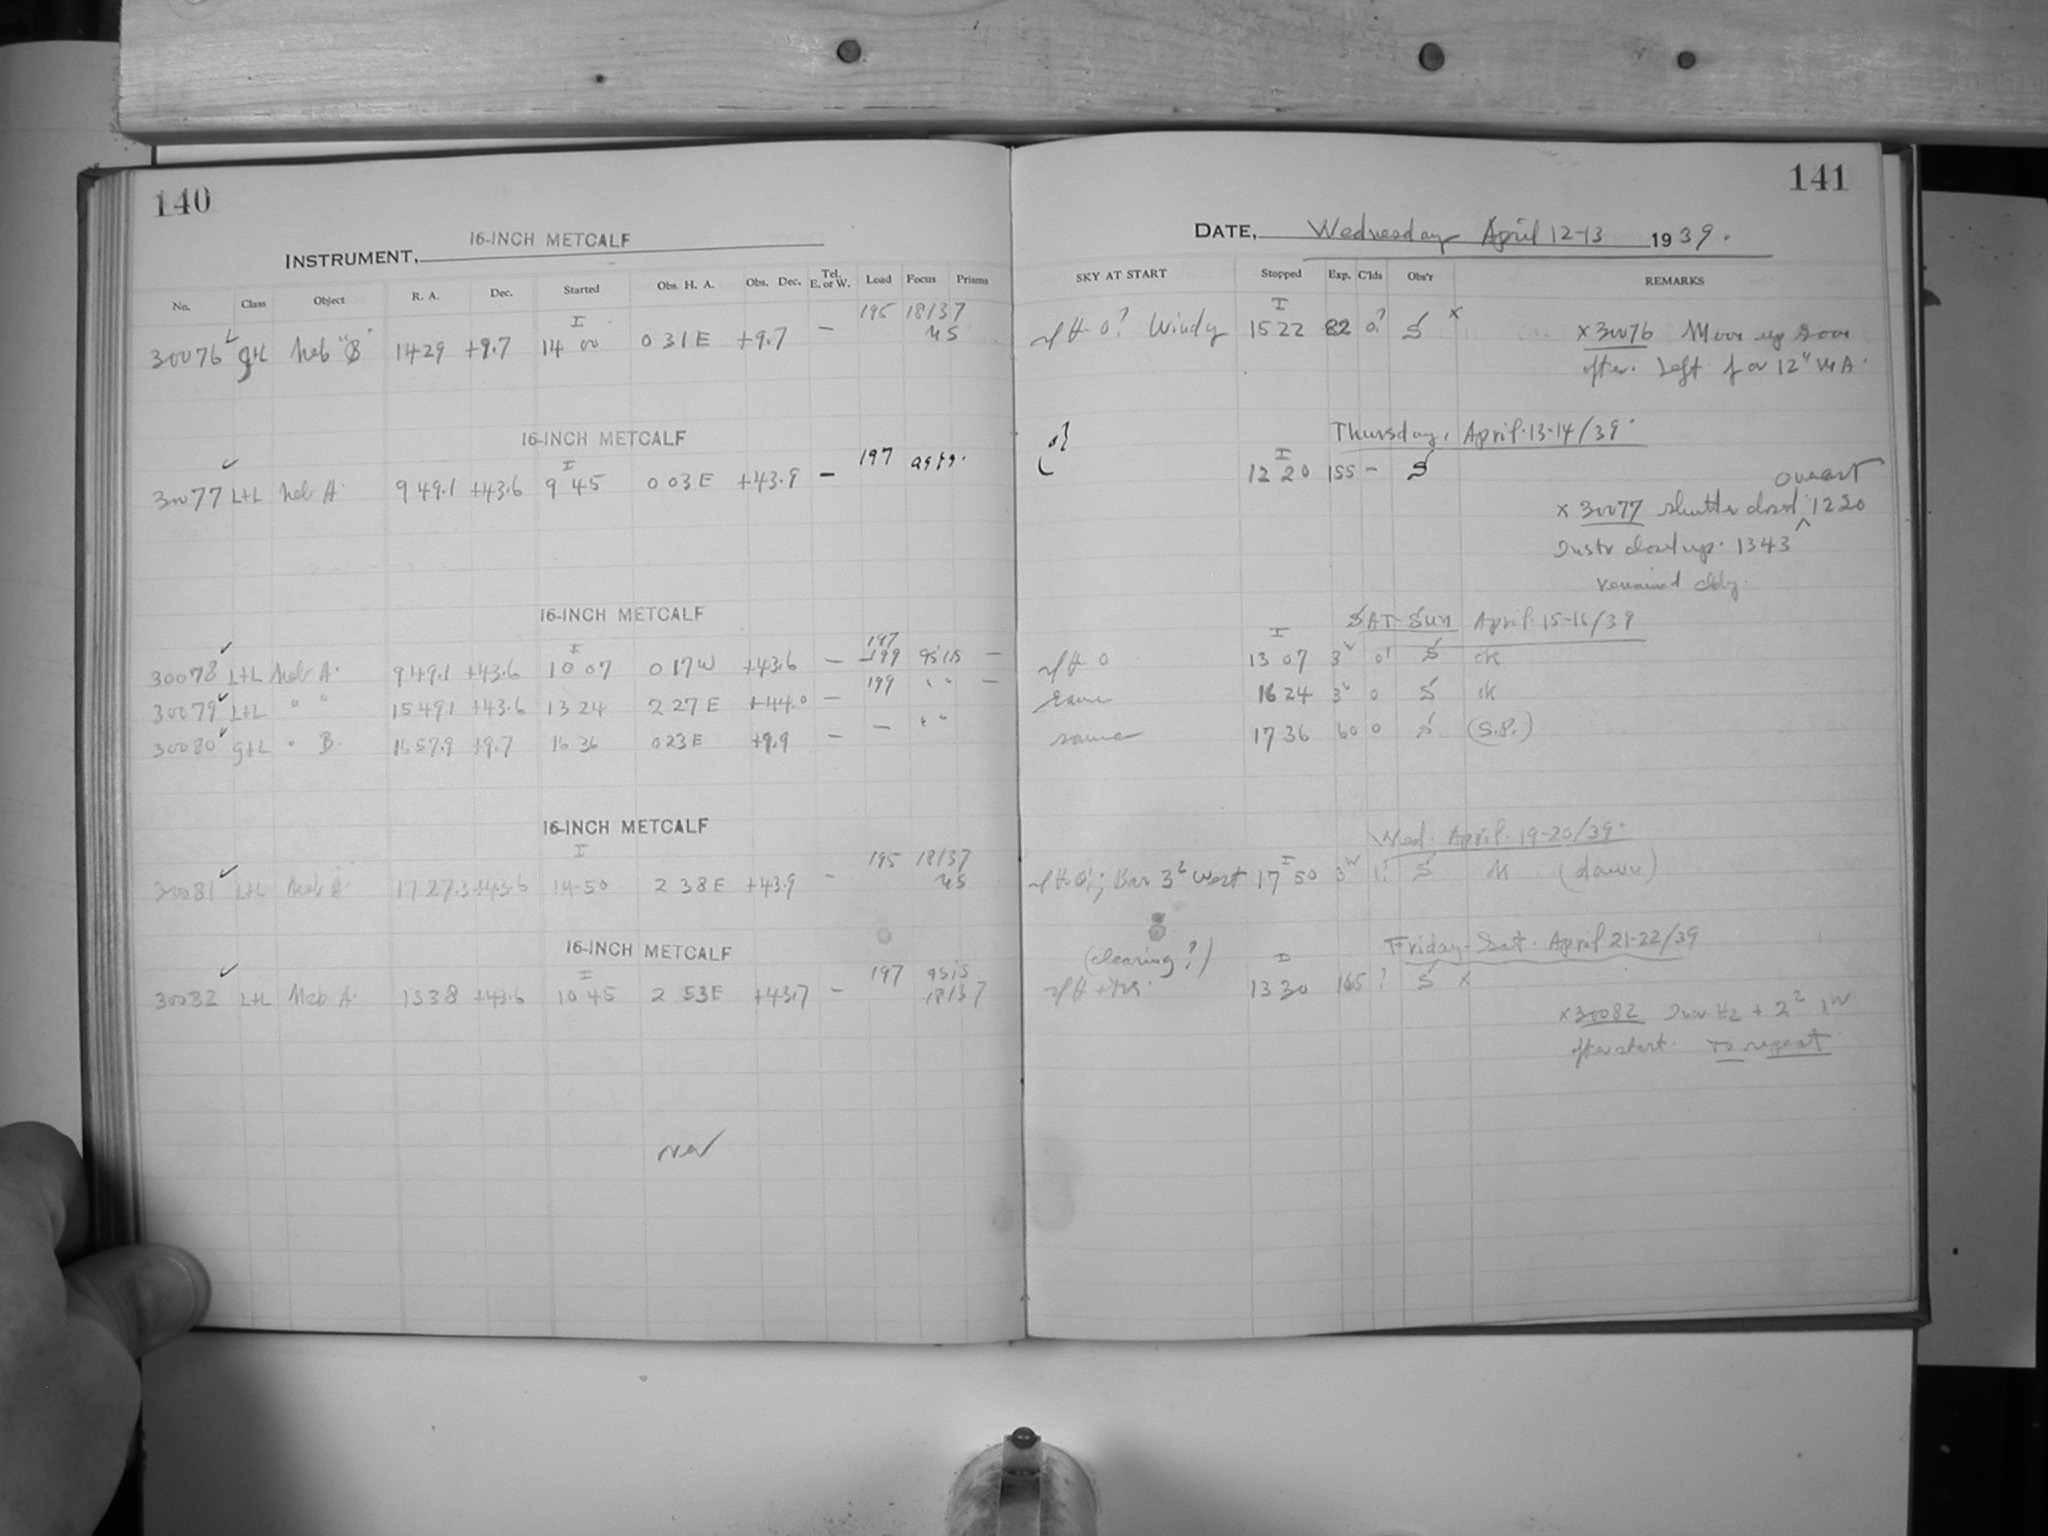 140
INSTRUMENT, 16-INCH METCALF
No. Class Object R. A. Dec. Started Obs. H. A. Obs. Dec. Tel. E. or W. Load Focus Prisms
I 195 18137
30076 g+L Neb "B" 1429 +9.7 14 00 0 31 E +9.7 –
16-INCH METCALF
I 197 as is.
30077 L+L Neb A. 9 49.1 +43.6 9 45 0 03 E +43.9 –
16-INCH METCALF
I 197
30078 L+L Neb A. 9 49.1 +43.6 10 07 0 17 W +43.6 – 199 as is –
30079 L+L " " 15 49.1 +43.6 13 24 2 27 E +44.0 – 199 " " –
30080 g+L " B. 16 57.9 +9.7 16 36 0 23 E +9.9 – – " "
16-INCH METCALF
I 195 18137
30081 L+L Neb A. 17 27.3 +43.6 14 50 2 38 E +43.9 –
16-INCH METCALF
I 197 as is
30082 L+L Neb A. 1338 +43.6 10 45 2 53 E +43.7 – 18137
141
DATE, Wednesday April 12-13 1939.
SKY AT START Stopped Exp. C'lds Obs'r REMARKS
I
0? Windy 15 22 82 0? S x
x 30076 Moon up soon
after. Left for 12"
Thursday, April 13-14/39.
I
12 20 155 – S
overcast
x 30077 shutter closed 1220
Instr closed up. 1343
remained cldy.
SAT-SUN April 15-16/39
I
0 13 07 3 0! S ok
same 16 24 3 0 S ok
same 17 36 60 0 S (S.P.)
Wed. April 19-20/39.
I
Bar 3² West 17 50 3 1! S ok (dawn)
Friday-Sat. April 21-22/39
(clearing?) I
13 30 165 ? S x
x 30082 Incr Hz + 2²
after start. to repeat